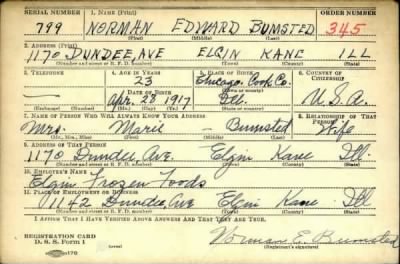 SERIAL NUMBER 1. NAME (Print) ORDER NUMBER
799 NORMAN EDWARD BUMSTED 345
(First) (Middle) (Last)
2. ADDRESS (Print)
1170 DUNDEE AVE ELGIN KANE ILL
(Number and street or R. F. D. number) (Town) (County) (State)
3. TELEPHONE 4. AGE IN YEARS 5. PLACE OF BIRTH 6. COUNTRY OF CITIZENSHIP
— 23 Chicago, Cook Co.
DATE OF BIRTH
Apr. 28 1917 Ill. U.S.A.
(Exchange) (Number) (Mo.) (Day) (Yr.) (State or country)
7. NAME OF PERSON WHO WILL ALWAYS KNOW YOUR ADDRESS 8. RELATIONSHIP OF THAT PERSON
Mrs. Marie — Bumsted Wife
(Mr., Mrs., Miss) (First) (Middle) (Last)
9. ADDRESS OF THAT PERSON
1170 Dundee Ave. Elgin Kane Ill.
(Number and street or R. F. D. number) (Town) (County) (State)
10. EMPLOYER'S NAME
Elgin Frozen Foods
11. PLACE OF EMPLOYMENT OR BUSINESS
1142 Dundee, Ave Elgin Kane Ill
(Number and street or R. F. D. number) (Town) (County) (State)
I AFFIRM THAT I HAVE VERIFIED ABOVE ANSWERS AND THAT THEY ARE TRUE.
REGISTRATION CARD
D. S. S. Form 1 (over) Norman E. Bumsted